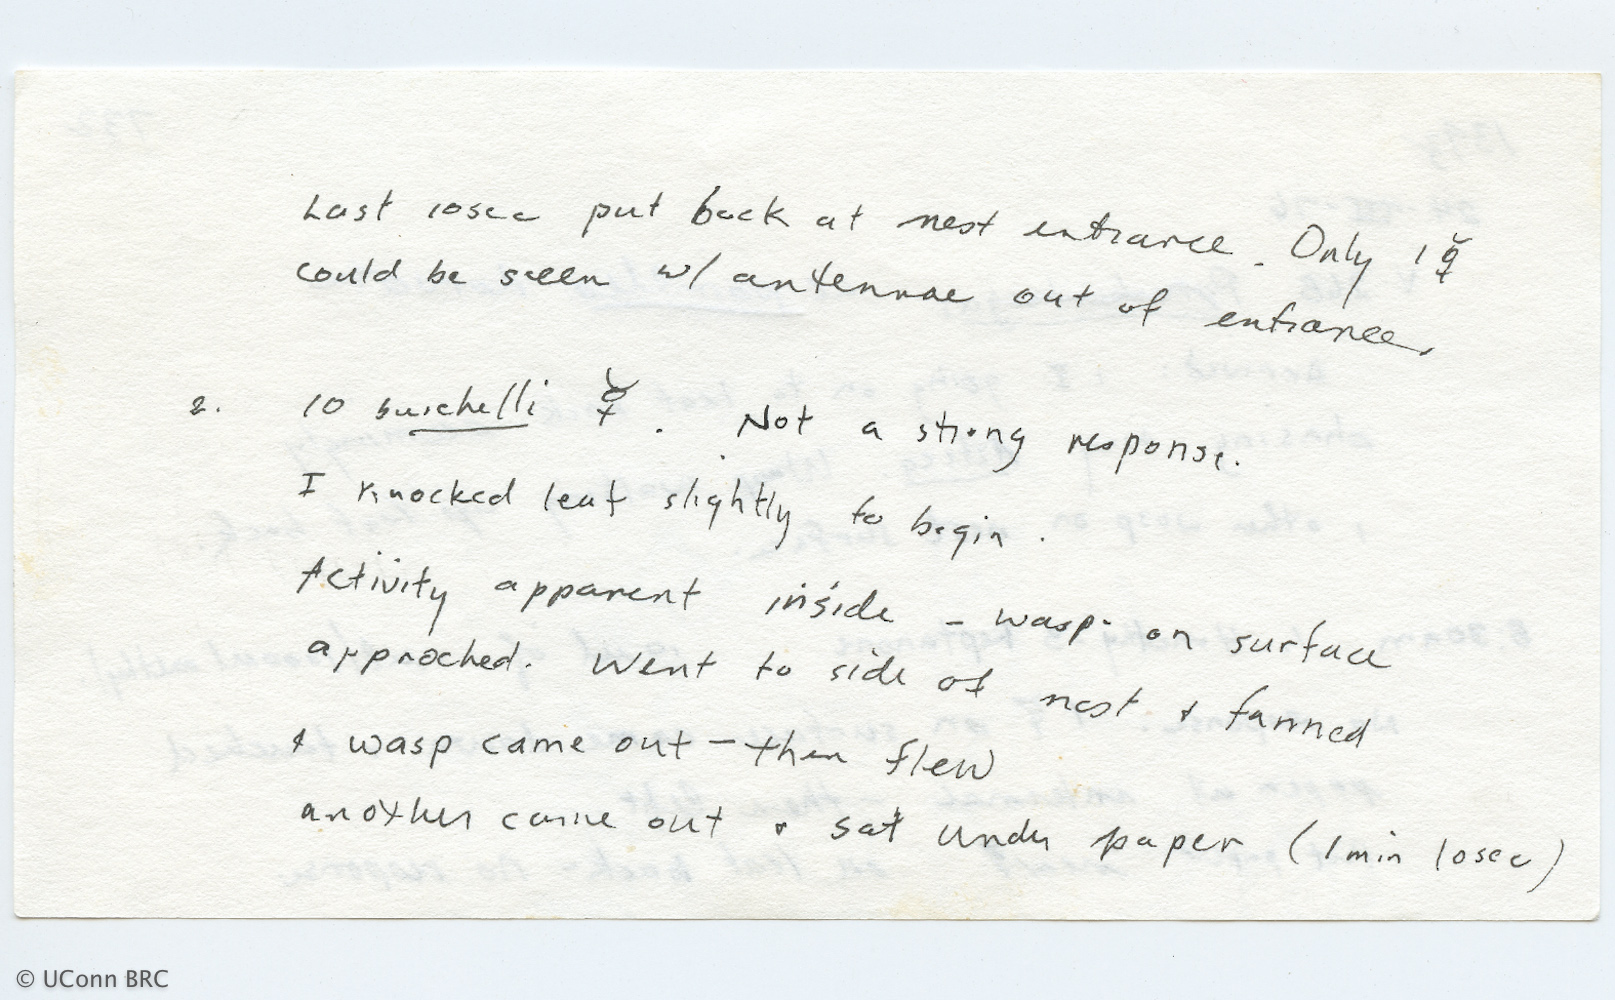 Last 10sec put back at nest entrance. Only 1 ☿
could be seen w/ antennae out of entrance.
2. 10 burchelli ☿. Not a strong response.
I knocked leaf slightly to begin.
Activity apparent inside - wasp on surface
approched. Went to side of nest & fanned
& wasp came out - then flew
another came out & sat under paper (1 min 10sec)
© UConn BRC